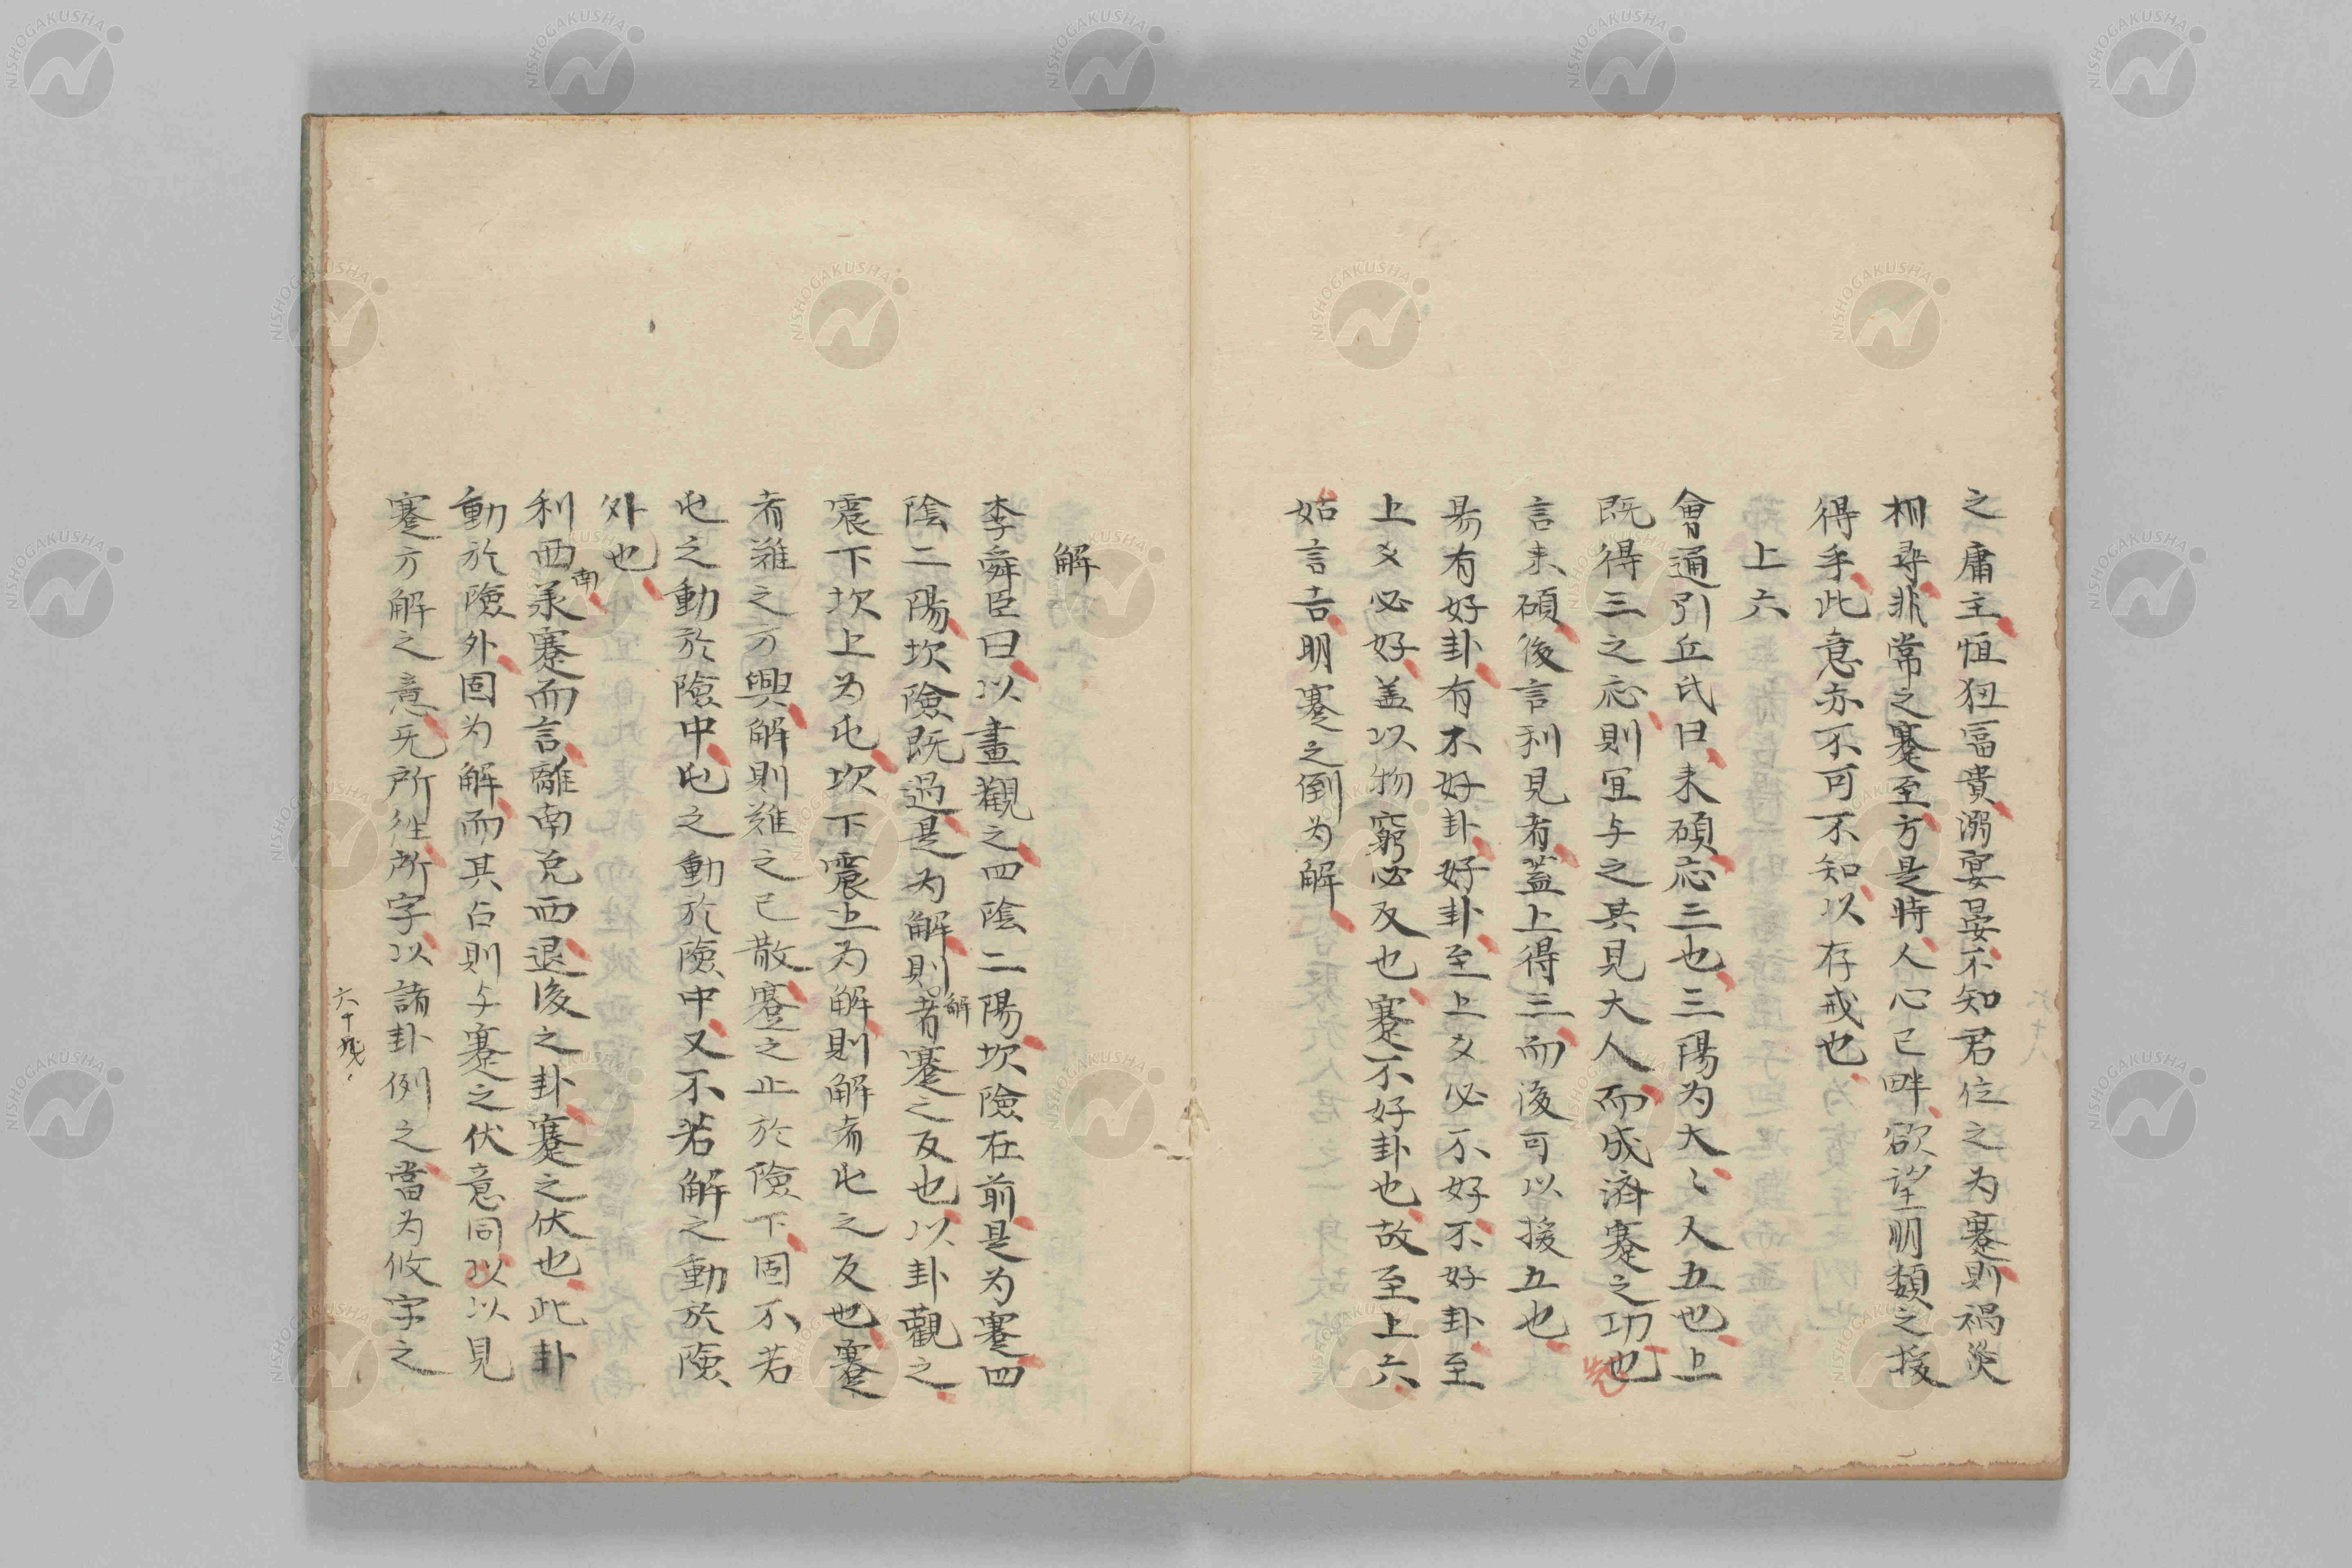 之庸主恒狃富貴溺宴晏不知君位之为蹇則禍災
相尋非常之蹇至方是時人心已畔欲望朋類之援
得乎此意亦不可不知以存戒也
上六
會通引丘氏曰来碩応三也三陽为大〻人五也上
既得三之応則宜与之共見大人而成済蹇之功也
言来碩後言利見者蓋上得三而後可以援五也
易有好卦有不好卦好卦至上爻必不好不好卦至
上爻必好蓋以物窮必反也蹇不好卦也故至上六
姑言吉明蹇之倒为解
解
李舜臣曰以畫觀之四陰二陽坎險在前是为蹇四
陰二陽坎險既過是为解則解者蹇之反也以卦觀之
震下坎上为屯坎下震上为解則解者屯之反也蹇
者難之方興解則難之已散蹇之止於險下固不若
屯之動於險中屯之動於險中又不若解之動於險
外也
利西南承蹇而言離南兌西退後之卦蹇之伏也此卦
動於險外固为解而其占則与蹇之伏意同以以見
蹇方解之意无所往所字以諸卦例之當为攸字之
六十九
NISHOGAKUSHA